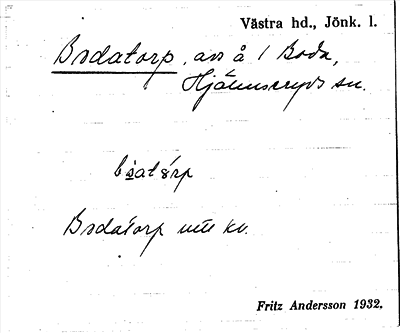 Västra hd., Jönk. l.
Bodatorp, avs å 1 Boda,
Hjälmseryds sn.
Bodatorp
Fritz Andersson 1932.